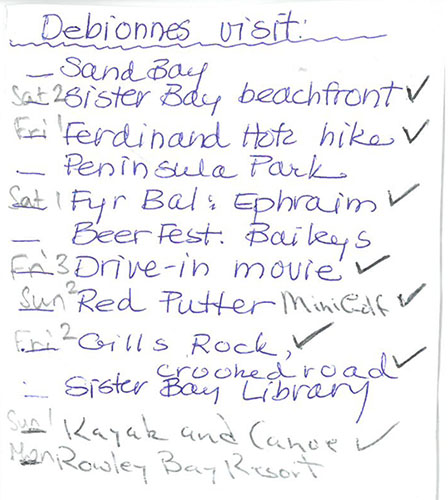 Debionnes visit:
— Sand Bay
Sat 2 Sister Bay beachfront ✓
Fri 1 Ferdinand Hotz hike ✓
— Peninsula Park
Sat 1 Fyr Bal: Ephraim ✓
— Beer Fest. Baileys
Fri 3 Drive-in movie ✓
Sun 2 Red Putter Mini Golf ✓
Fri 2 Gills Rock, ✓
crooked road ✓
— Sister Bay Library
Sun 1 Kayak and Canoe ✓
Mon Rowley Bay Resort